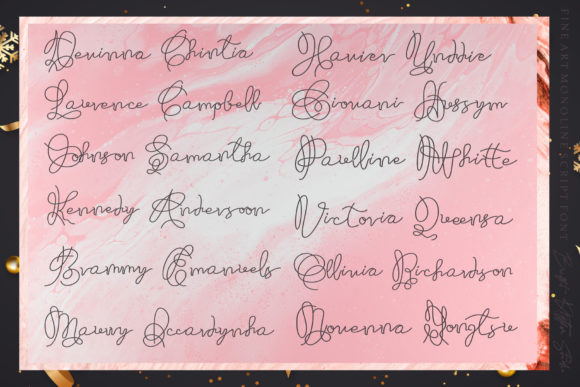 Devinna Chintia
Lawrence Campbell
Johnson Samantha
Kennedy Andersoon
Brammy Emanuels
Mawwy Occardyndha
Havier Unddie
Giovani Hussym
Paullbine Whitte
Victoria Queensa
Ollivia Richardson
Novenna Yongtsie
FINE ART MONOLINE SCRIPT FONT